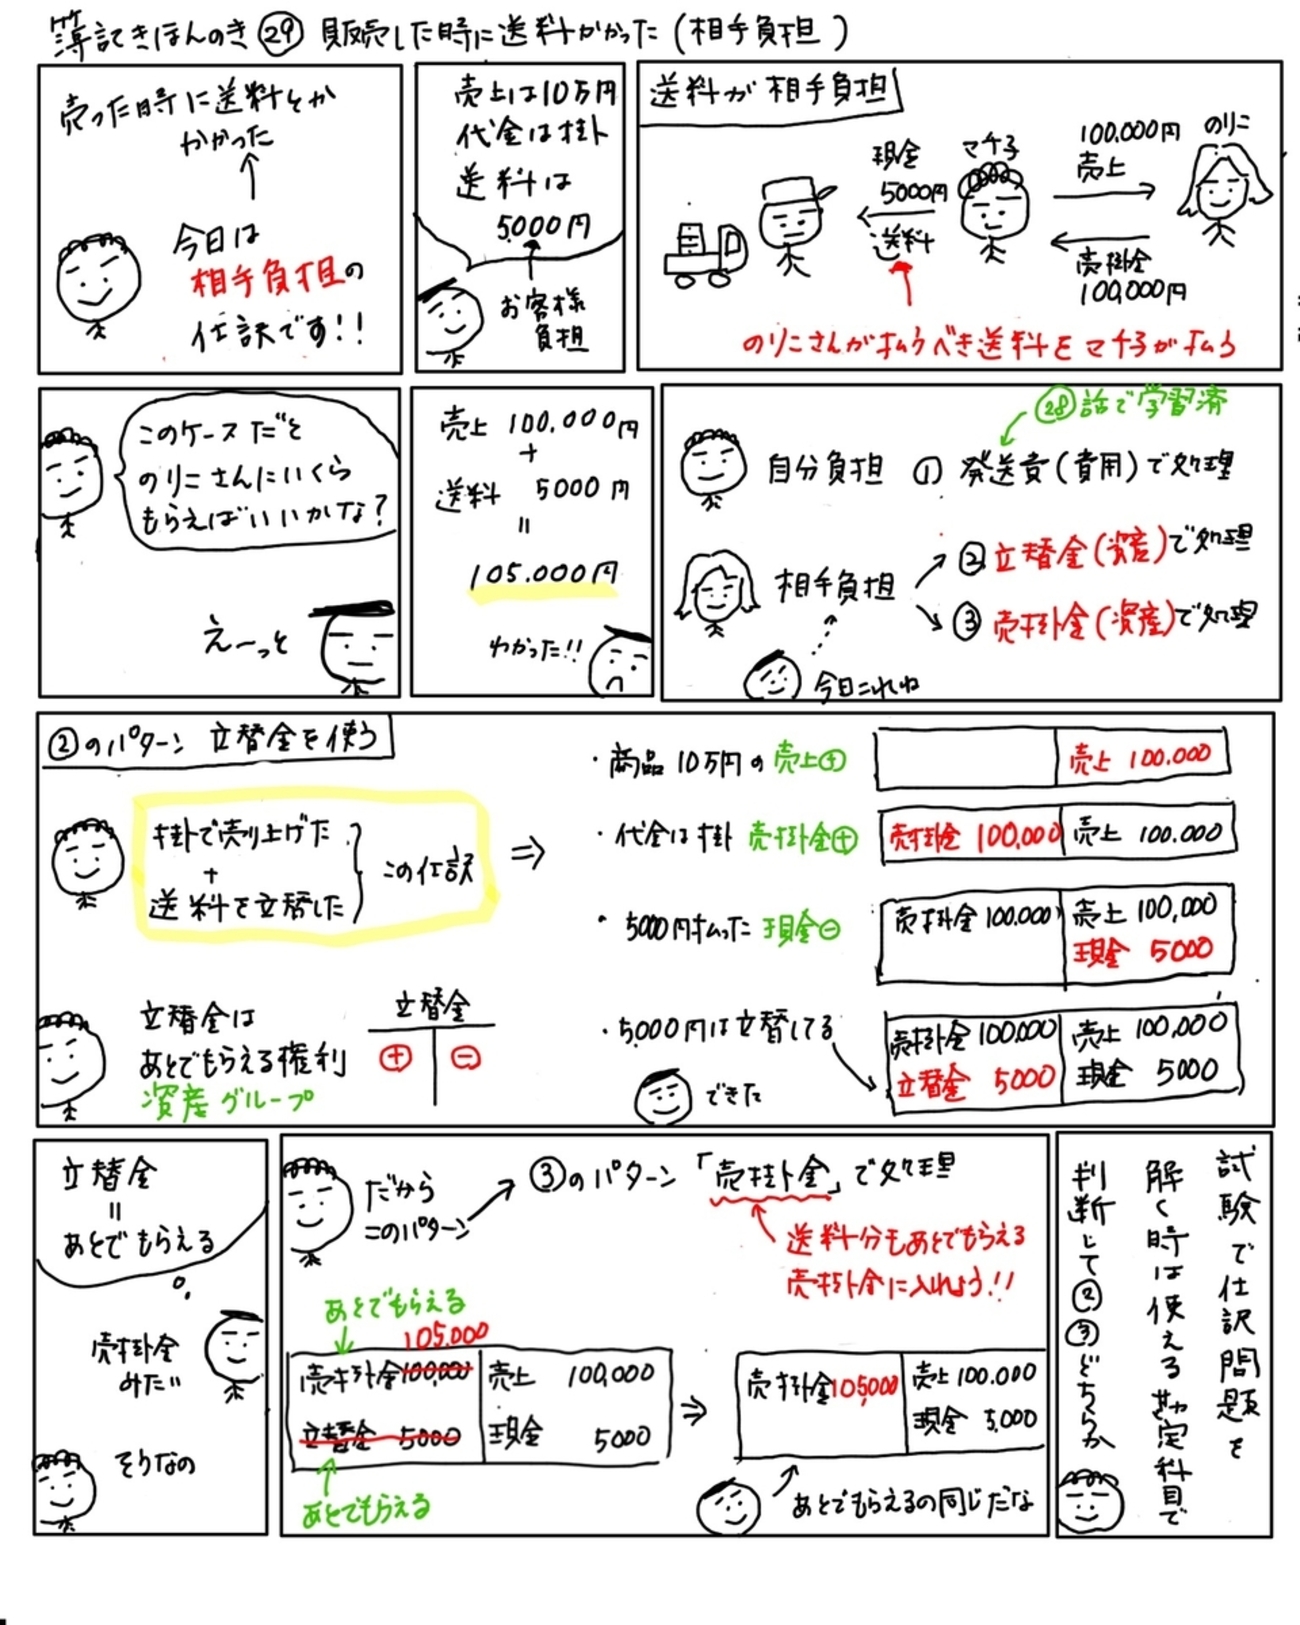 簿記きほんのき㉙ 販売した時に送料かかった(相手負担)
売った時に送料とか
かかった
今日は
相手負担の
仕訳です!!
売上は10万円
代金は掛
送料は
5,000円
お客様
負担
送料が相手負担
現金
5000円
送料
マチ子
100,000円
売上
のりこ
売掛金
100,000円
のりこさんが払うべき送料をマチ子が払う
このケースだと
のりこさんにいくら
もらえばいいかな?
えーっと
売上 100,000円
+
送料 5000円
=
105,000円
わかった!!
㉘話で学習済
自分負担 ① 発送費(費用)で処理
相手負担
②立替金(資産)で処理
③売掛金(資産)で処理
今日これね
②のパターン 立替金を使う
掛で売り上げた
+
送料を立替した
この仕訳
立替金は
あとでもらえる権利
資産グループ
立替金
+ −
・商品10万円の売上+
売上 100,000
・代金は掛 売掛金+
売掛金 100,000 売上 100,000
・5000円払った 現金−
売掛金 100,000 売上 100,000
現金 5000
・5,000円は立替してる
売掛金 100,000 売上 100,000
立替金 5000 現金 5000
できた
立替金
=
あとでもらえる
売掛金
みたい
そうなの
だから
このパターン
③のパターン「売掛金」で処理
送料分もあとでもらえる
売掛金に入れよう!!
あとでもらえる
105,000
売掛金 100,000 売上 100,000
立替金 5000 現金 5000
あとでもらえる
売掛金 105,000 売上 100,000
現金 5,000
あとでもらえるの同じだな
試験で仕訳問題を
解く時は使える勘定科目で
判断して②③どちらか